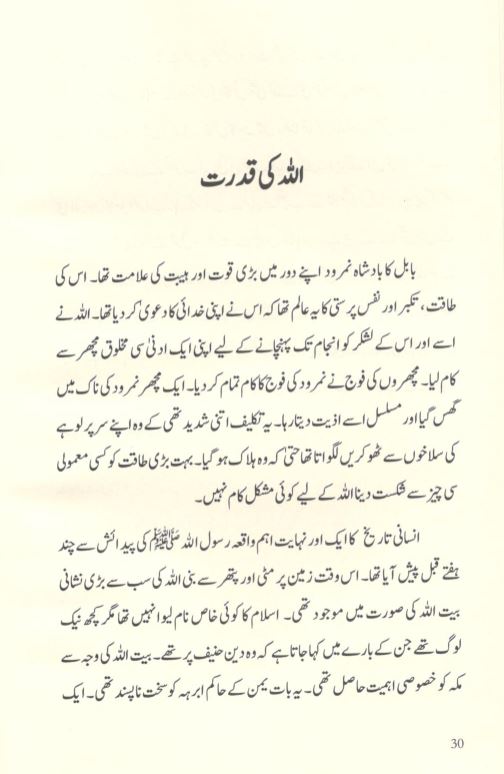 اللہ کی قدرت
بابل کا بادشاہ نمرود اپنے دور میں بڑی قوت اور ہیبت کی علامت تھا۔ اس کی
طاقت، تکبر اور نفس پرستی کا یہ عالم تھا کہ اس نے اپنی خدائی کا دعویٰ کر دیا تھا۔ اللہ نے
اسے اور اس کے لشکر کو انجام تک پہنچانے کے لیے اپنی ایک ادنیٰ سی مخلوق مچھر سے
کام لیا۔ مچھروں کی فوج نے نمرود کی فوج کا کام تمام کر دیا۔ ایک مچھر نمرود کی ناک میں
گھس گیا اور مسلسل اسے اذیت دیتا رہا۔ یہ تکلیف اتنی شدید تھی کے وہ اپنے سر پر لوہے
کی سلاخوں سے ٹھوکریں لگواتا تھا حتیٰ کہ وہ ہلاک ہو گیا۔ بہت بڑی طاقت کو کسی معمولی
سی چیز سے شکست دینا اللہ کے لیے کوئی مشکل کام نہیں۔
انسانی تاریخ کا ایک اور نہایت اہم واقعہ رسول اللہ ﷺ کی پیدائش سے چند
ہفتے قبل پیش آیا تھا۔ اس وقت زمین پر مٹی اور پتھر سے بنی اللہ کی سب سے بڑی نشانی
بیت اللہ کی صورت میں موجود تھی۔ اسلام کا کوئی خاص نام لیوا نہیں تھا مگر کچھ نیک
لوگ تھے جن کے بارے میں کہا جاتا ہے کہ وہ دین حنیف پر تھے۔ بیت اللہ کی وجہ سے
مکہ کو خصوصی اہمیت حاصل تھی۔ یہ بات یمن کے حاکم ابرہہ کو سخت ناپسند تھی۔ ایک
30